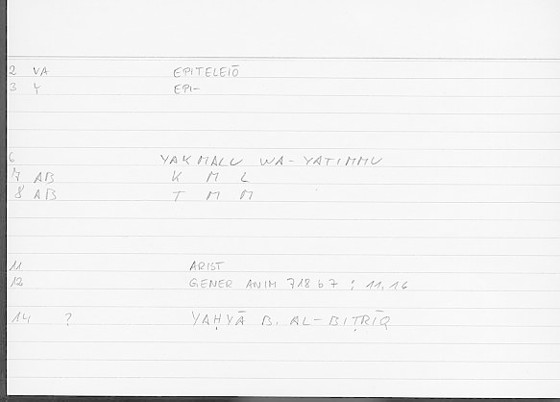 2 VA EPITELEIŌ
3 Y EPI-
6 YAKMALU WA-YATIMMU
7 AB K M L
8 AB T M M
11 ARIST
12 GENER ANIM 718 b 7 ; 11,16
14 ? YAḤYĀ B. AL-BIṬRĪQ